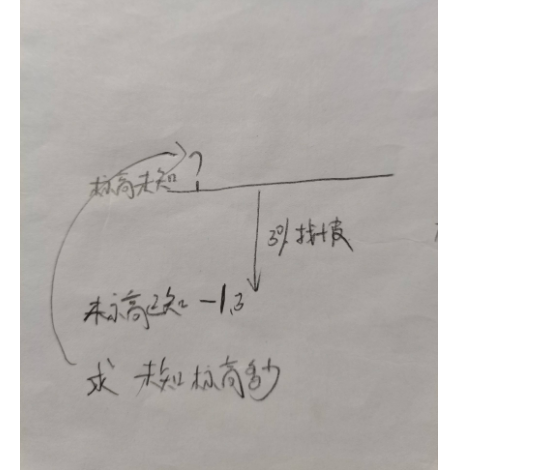 ?
标高未知
3% 找坡
标高已知 -1.3
求 未知标高多少